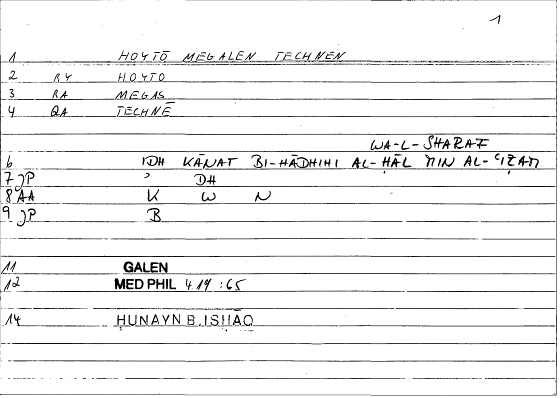 1
1 HOYTŌ MEGALEN TECHNEN
2 RY HOYTO
3 RA MEGAS
4 QA TECHNĒ
WA-L-SHARAF
6 IDH KĀNAT BI-HĀDHIHI AL-ḤĀL MIN AL-ʿIẒAM
7 JP ʾ DH
8 AA K W N
9 JP B
11 GALEN
12 MED PHIL 419 :65
14 ḤUNAYN B. ISḤĀQ